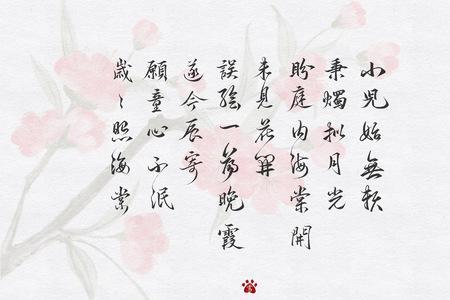 小児始無頼
秉燭拟月光
盼庭内海棠開
未見花開
誤繪一篇晚霞
遂今辰寄
願童心不泯
歲々照海棠